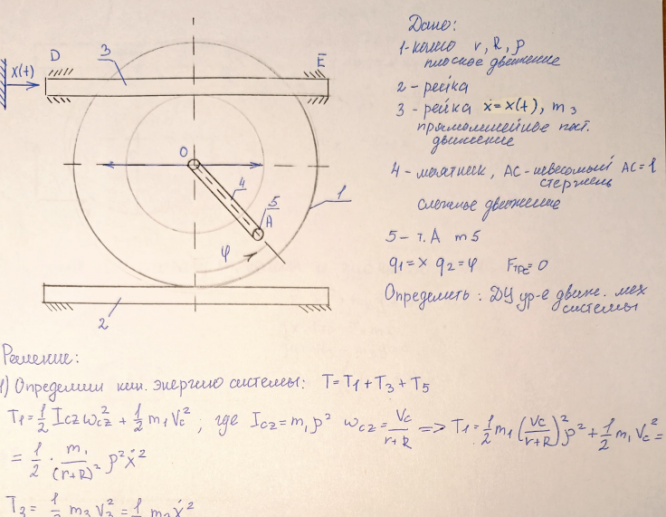 D
3
Ē
x(t)
O
4
5
A
1
φ
2
Дано:
1-колесо r, R, ρ
плоское движение
2 - рейка
3 - рейка x=x(t), m3
прямолинейное пост.
движение
4 - маятник, AC - невесомый AC=l
стержень
сложное движение
5 - т. A m5
q1=x q2=φ Fтре=0
Определить: ДУ ур-е движ. мех
системы
Решение:
1) Определим кин. энергию системы: T=T1+T3+T5
T1=1/2 Icz ωcz² + 1/2 m1 Vc² ; где Icz=m1ρ² ωcz=Vc/(r+R) => T1=1/2 m1 (Vc/(r+R))² ρ² + 1/2 m1 Vc² =
= 1/2 · m1/(r+R)² ρ² ẋ²
T3= 1/2 m3 V3² = 1/2 m3 ẋ²